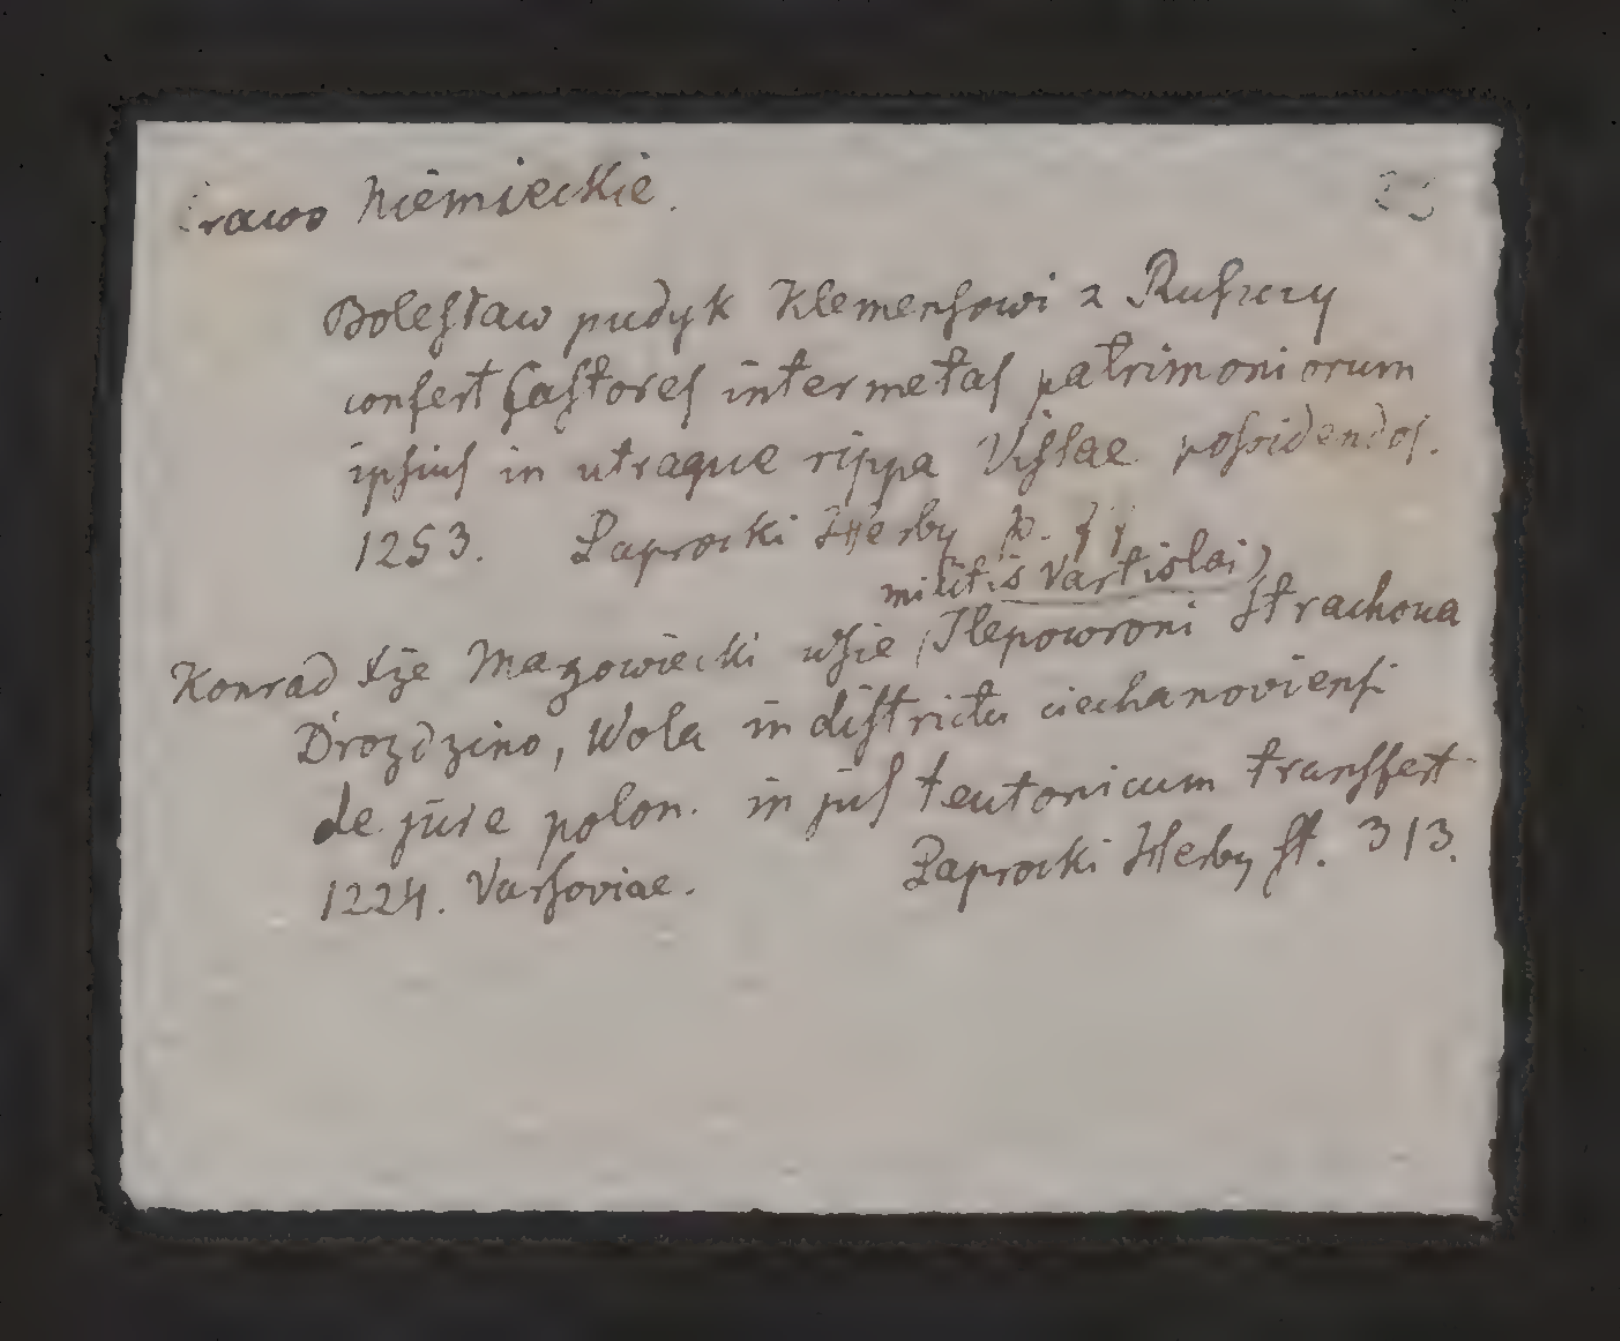 Prawo Niemieckie.
Bolesław pudyk Klemensowi z Ruszczy
confert Castores inter metas patrimoniorum
ipsius in utraque rippa Vislae possidendos.
1253. Paprocki Herby p.
militis Vartislai)
Konrad Xże Mazowiecki wsie (Slepowroni Strachova
Drozdzino, Wola in districtu ciechanoviensi
de jure polon. in jus teutonicum transfert
1224. Varsoviae. Paprocki Herby st. 313.